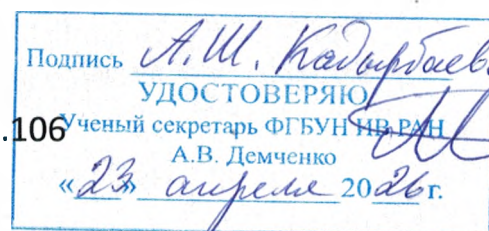 Подпись А.Ш. Кадырбаев
УДОСТОВЕРЯЮ
.106 Ученый секретарь ФГБУН ИВ РАН
А.В. Демченко
«23» апреля 2026 г.